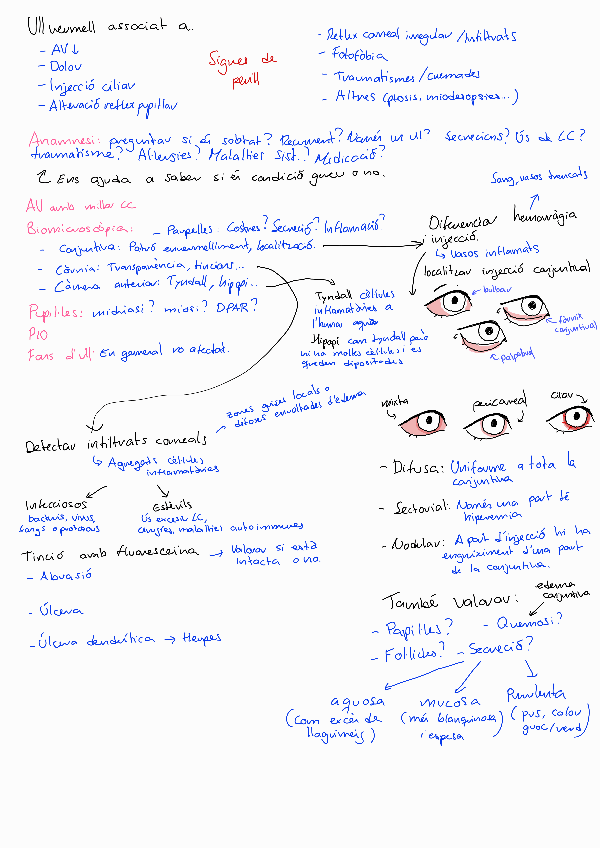 Ull vermell associat a.
- AV↓
- Dolor
- Injecció ciliar
- Alteració reflex pupil·lar
Signes de
perill
- Reflux corneal irregular / Infiltrats
- Fotofòbia
- Traumatismes / cremades
- Altres (ptosis, miodesopsies...)
Anamnesi: preguntar si és sobtat? Recurrent? Només un ull? Secrecions? Ús de LC?
traumatisme? Al·lèrgies? Malalties sist.? Medicació?
Ens ajuda a saber si és condició greu o no.
AV amb millor CC
Biomicroscòpia: - Parpelles. Costres? Secreció? Inflamació?
- Conjuntiva: Patró envermelliment, localització.
- Còrnia: Transparència, tincions...
- Càmera anterior: Tyndall, hipopi...
Pupil·les: midriasi? miosi? DPAR?
PIO
Fons d'ull: En general no afectat.
Sang, vasos trencats
Diferenciar hemorràgia
injecció.
↳ Vasos inflamats
localitzar injecció conjuntival
bulbar
fòrnix
conjuntival
palpebral
Tyndall cèl·lules
inflamatòries a
l'humor aquós
Hipopi com tyndall però
hi ha moltes cèl·lules i es
queden dipositades
zones grises locals o
difoses envoltades d'edema
Detectar infiltrats corneals
↳ Agregats cèl·lules
inflamatòries
Infecciosos
bacteris, virus,
fongs o protozous
Estèrils
Ús excessiu LC,
cirurgies, malalties autoimmunes
Tinció amb fluoresceïna → Valorar si està
intacta o no.
- Abrasió
- Úlcera
- Úlcera dendrítica → Herpes
mixta
pericorneal
clar
- Difusa: Uniforme a tota la
conjuntiva
- Sectorial: Només una part té
hiperèmia
- Nodular: A part d'injecció hi ha
engruiximent d'una part
de la conjuntiva.
També valorar:
edema
conjuntiva
- Papil·les?
- Quemosi?
- Fol·licles?
- Secreció?
aquosa
(com excés de
llagrimeig)
mucosa
(més blanquinosa
i espesa
Purulenta
(pus, color
groc/verd)